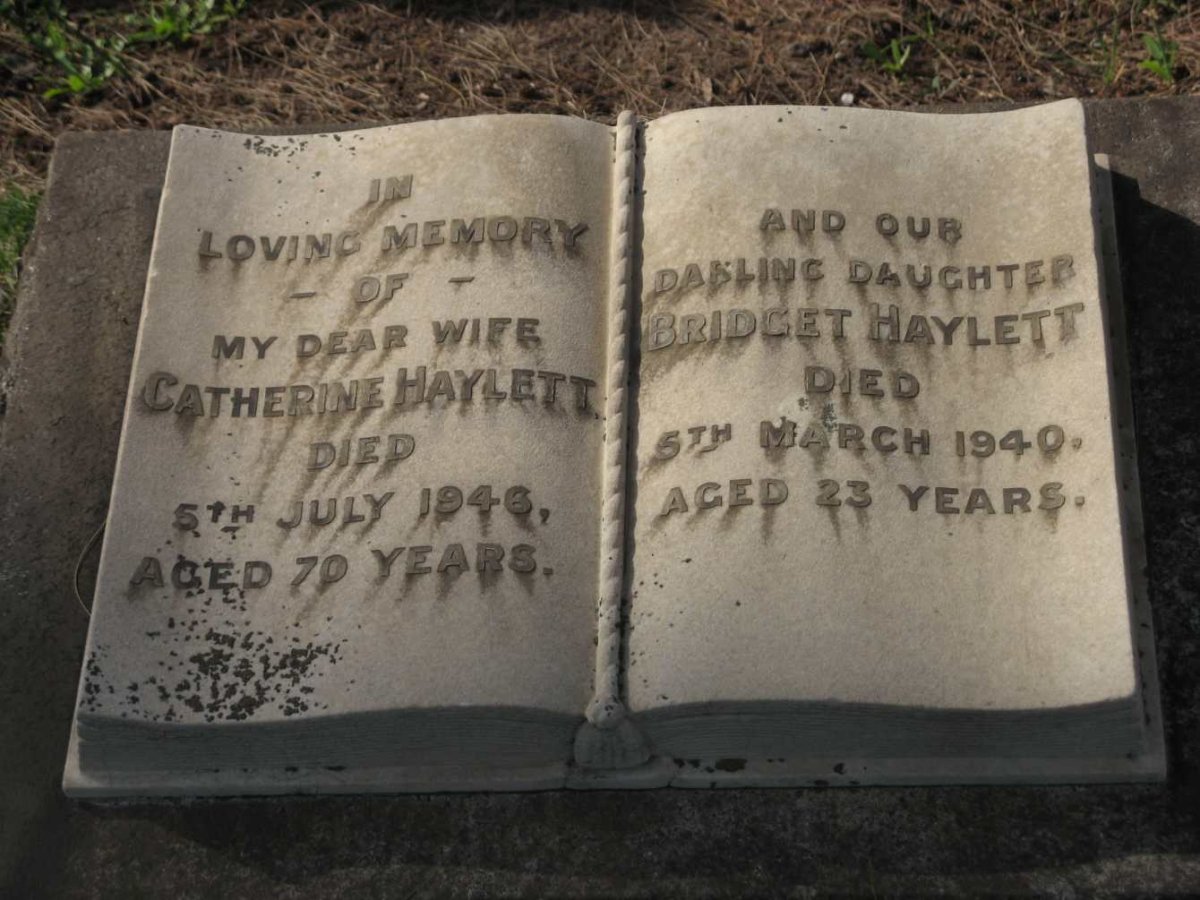 IN
LOVING MEMORY
– OF –
MY DEAR WIFE
CATHERINE HAYLETT
DIED
5TH JULY 1946,
AGED 70 YEARS.
AND OUR
DARLING DAUGHTER
BRIDGET HAYLETT
DIED
5TH MARCH 1940.
AGED 23 YEARS.